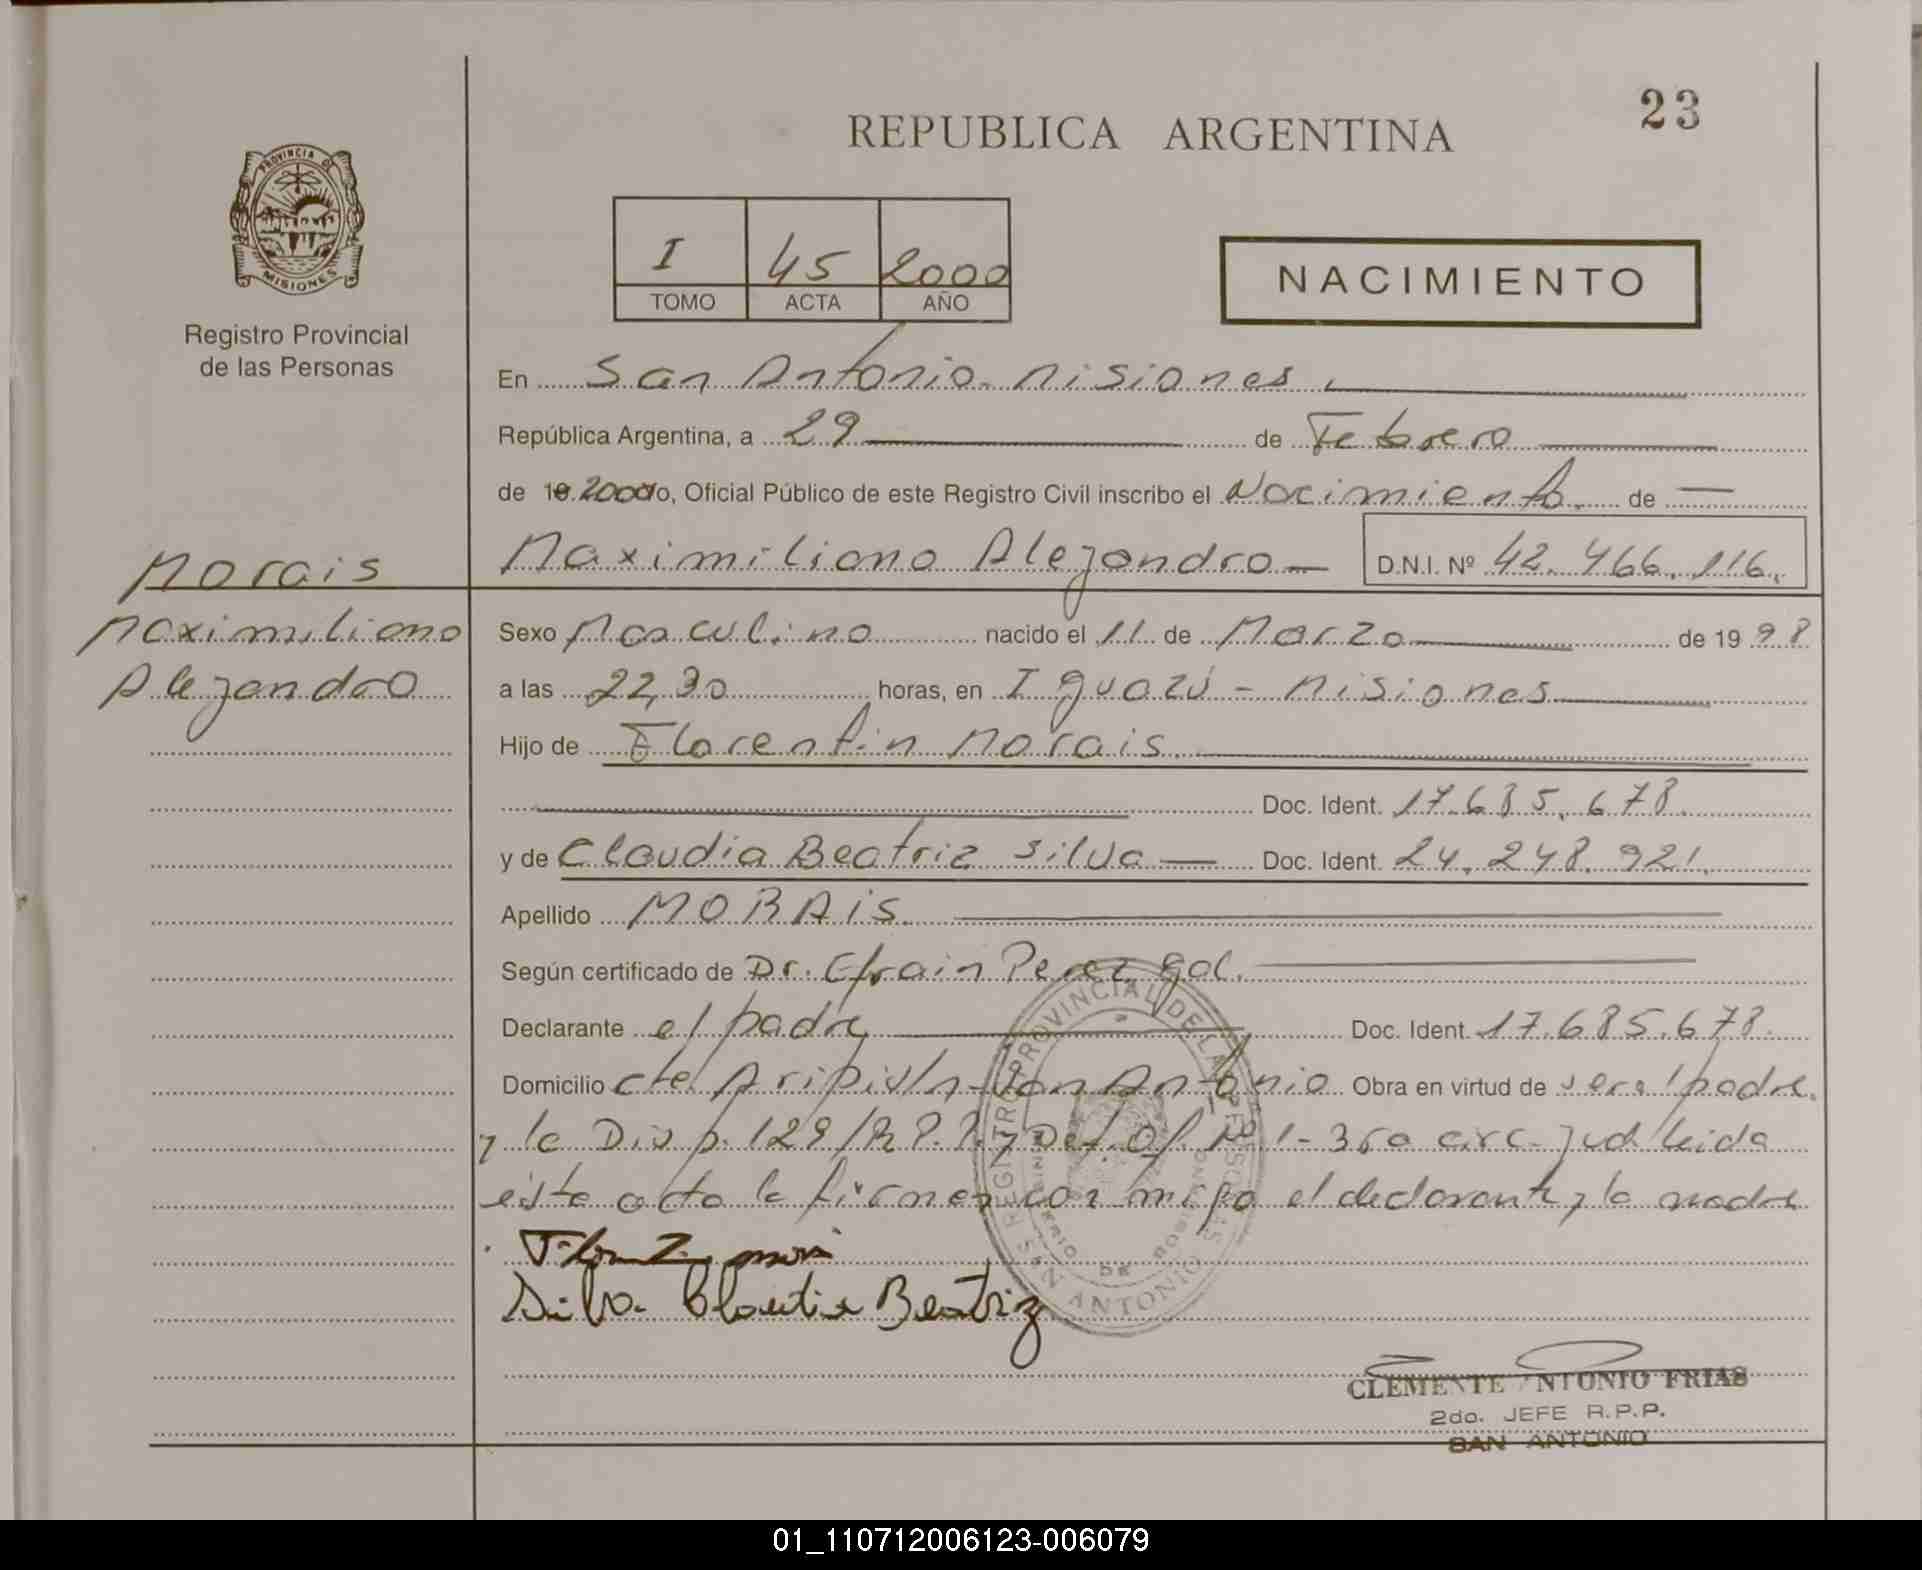 23
REPUBLICA ARGENTINA
PROVINCIA DE
MISIONES
Registro Provincial
de las Personas
I 45 2000
TOMO ACTA AÑO
NACIMIENTO
En San Antonio - Misiones
República Argentina, a 29 de Febrero
de 19 2000 Yo, Oficial Público de este Registro Civil inscribo el Nacimiento de
Morais
Maximiliano Alejandro D.N.I. Nº 42.466.116.
Maximiliano
Alejandro
Sexo Masculino nacido el 11 de Marzo de 19 98
a las 22,30 horas, en Iguazú - Misiones
Hijo de Florentin Morais
Doc. Ident. 17.685.678.
y de Claudia Beatriz Silva Doc. Ident. 24.248.921.
Apellido MORAIS
Según certificado de Dr. Efrain Perez
Declarante el padre Doc. Ident. 17.685.678.
Domicilio San Antonio Obra en virtud de ser el padre
y la Disp. 129/R.P.P. y Def. Of. Nº 1- 3ra circ. jud. leida
esta acta la firman con migo el declarante y la madre
Silva Claudia Beatriz
REGISTRO PROVINCIAL DE LAS PERSONAS
SAN ANTONIO
MINISTERIO DE GOBIERNO
CLEMENTE ANTONIO FRIAS
2do. JEFE R.P.P.
SAN ANTONIO
01_110712006123-006079